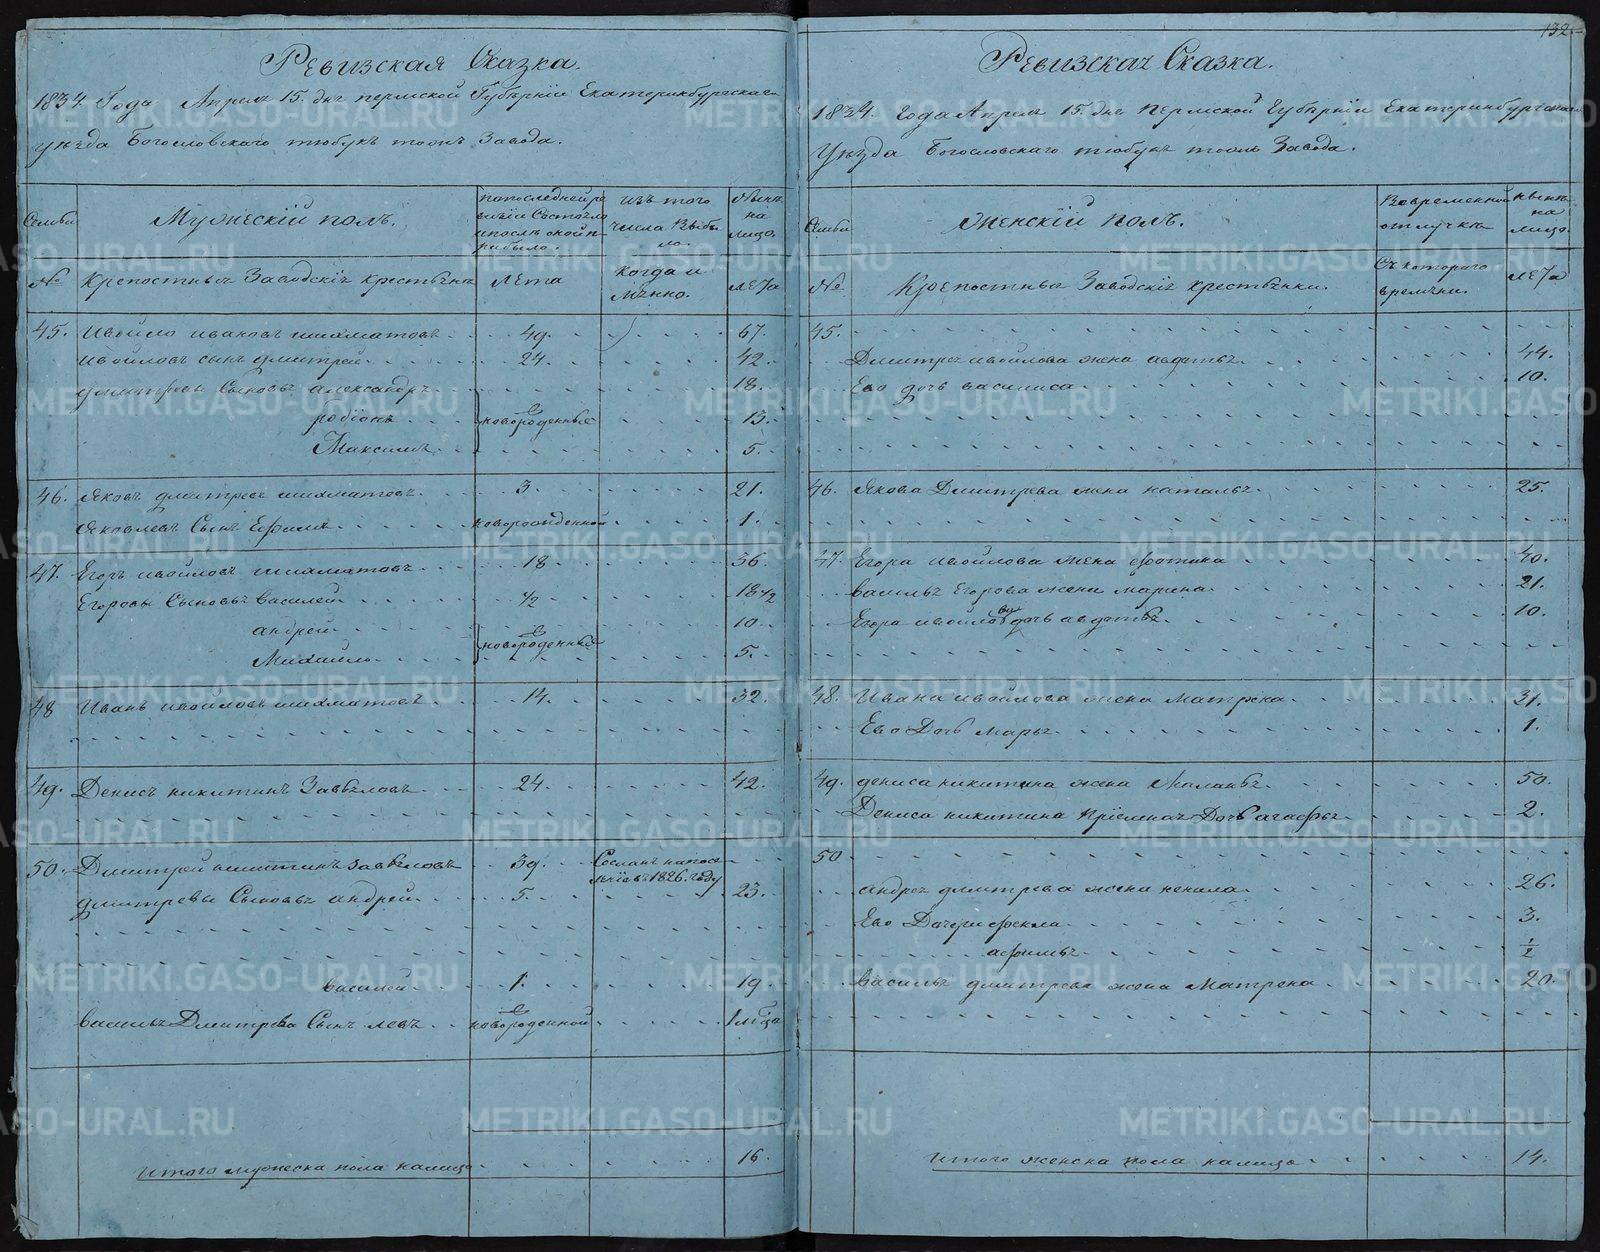 Ревизская Сказка.
1834. Года Апреля 15. дня пермской Губѣрнiи Екатеринбургскаго
уѣзда Богословскаго тюбукъ тоожъ Завода.
Семьи
Мужескiй полъ.
По последней ре
визiи Состояло
и послѣ оной п
рибыло.
Изъ того
числа Выбы
ло.
Ныне
на
лицо.
№
Крепостныя Заводскiя крестьяня
Лета
Когда и
Мянно.
Лета
45. Ивойло ивановъ шихматовъ 49. 67.
ивойловъ сынъ дмитрей 24. 42.
дмитревы Сыновья александръ 18.
родiонъ новороденные 13.
Максимъ 5.
46. Яковъ дмитревъ шихматовъ 3. 21.
Яковлевъ Сынъ Ефимъ новорожденной 1.
47. Егоръ ивойловъ шихматовъ 18. 36.
Егоровы Сыновья василей 1/2 18 1/2
андрей новороденные 10.
Михайло 5.
48 Иванъ ивойловъ шихматовъ 14. 32.
49. Денисъ никитинъ Завьяловъ 24. 42.
50. Дмитрей никитинъ завьяловъ 39. Сосланъ на посе
ленiе въ 1826. году
дмитревы Сыновья андрей 5. 23.
василей 1. 19.
василья Дмитрева Сынъ левъ новороденной 1 мѣца
итого мужеска пола налицо 16.
132.
Ревизская Сказка.
1834. Года Апреля 15. дня Пермской Губѣрнiи Екатеринбургскаго
Уѣзда Богословскаго тюбукъ тоожъ Завода.
Семьи
Женскiй полъ.
Во временной
отлучке
Ныне
на
лицо.
№
Крепостныя Заводскiя крестьянки.
Съ которого
времяни.
Лета
45.
Дмитрея ивойлова жена авдотья 44.
Ево дочь василиса 10.
46. Якова Дмитрева жена наталья 25.
47. Егора ивойлова жена фотинья 40.
василья Егорова жена марина 21.
Егора ивойлова дочь авдотья 10.
48. Ивана ивойлова жена Матрена 31.
Ево Дочь марья 1.
49. дениса никитина жена Маланья 50.
Дениса никитина прiемная Дочь агафья 2.
50
андрея дмитрева жена ненила 26.
Ево Дочери фекла 3.
афимья 1/2
василья дмитрева жена Матрена 20.
итого женска пола налицо 14.
METRIKI.GASO-URAL.RU